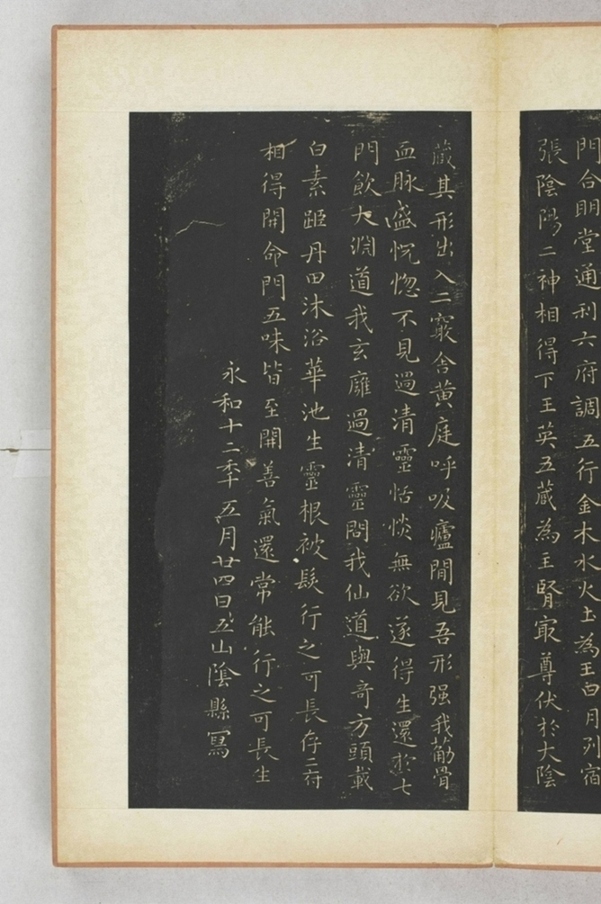 門合明堂通利六府調五行金木水火土為王日月列宿
張陰陽二神相得下玉英五藏為主腎寂尊伏於大陰
藏其形出入二竅舍黃庭呼吸廬間見吾形强我筋骨
血脉盛怳惚不見過清靈恬惔無欲遂得生還於七
門飲大淵道我玄廱過清靈問我仙道與奇方頭載
白素距丹田沐浴華池生靈根被髮行之可長存二府
相得開命門五味皆至開善氣還常能行之可長生
永和十二年五月廿四日五山陰縣寫